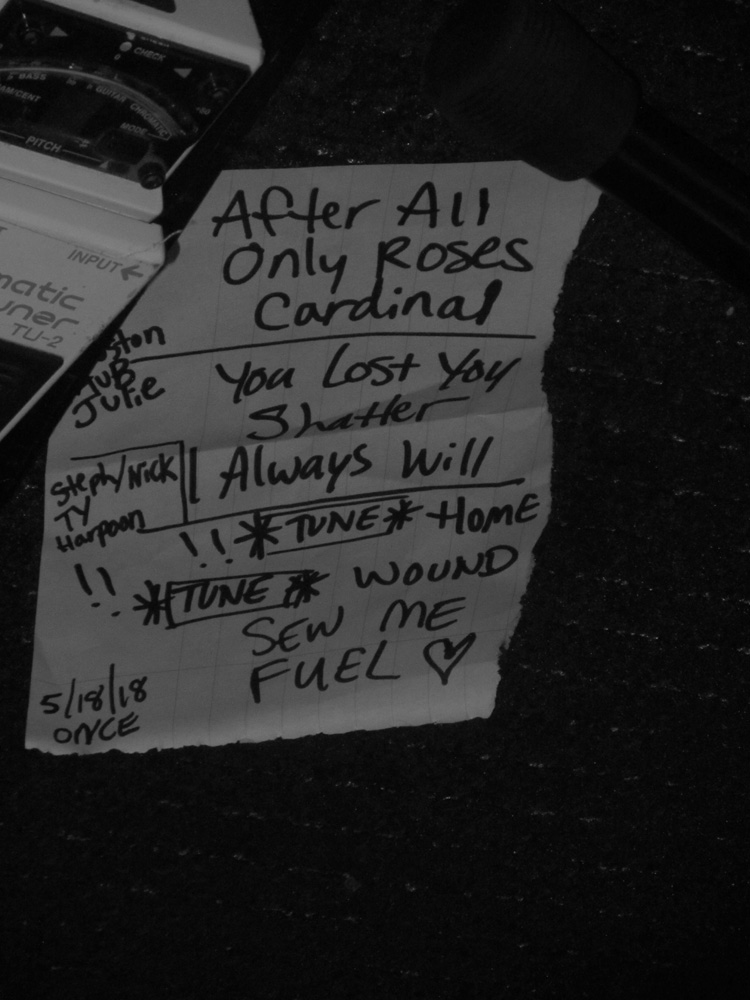 CHECK
BASS
GUITAR CHROMATIC
MODE
PITCH
INPUT←
matic
uner
TU-2
After All
Only Roses
Cardinal
ston
HUB
Julie
You Lost You
Shatter
Steph/Nick
TY
Harpoon
Always Will
!! *TUNE* HOME
!! *TUNE* WOUND
SEW ME
FUEL ♡
5/18/18
ONCE